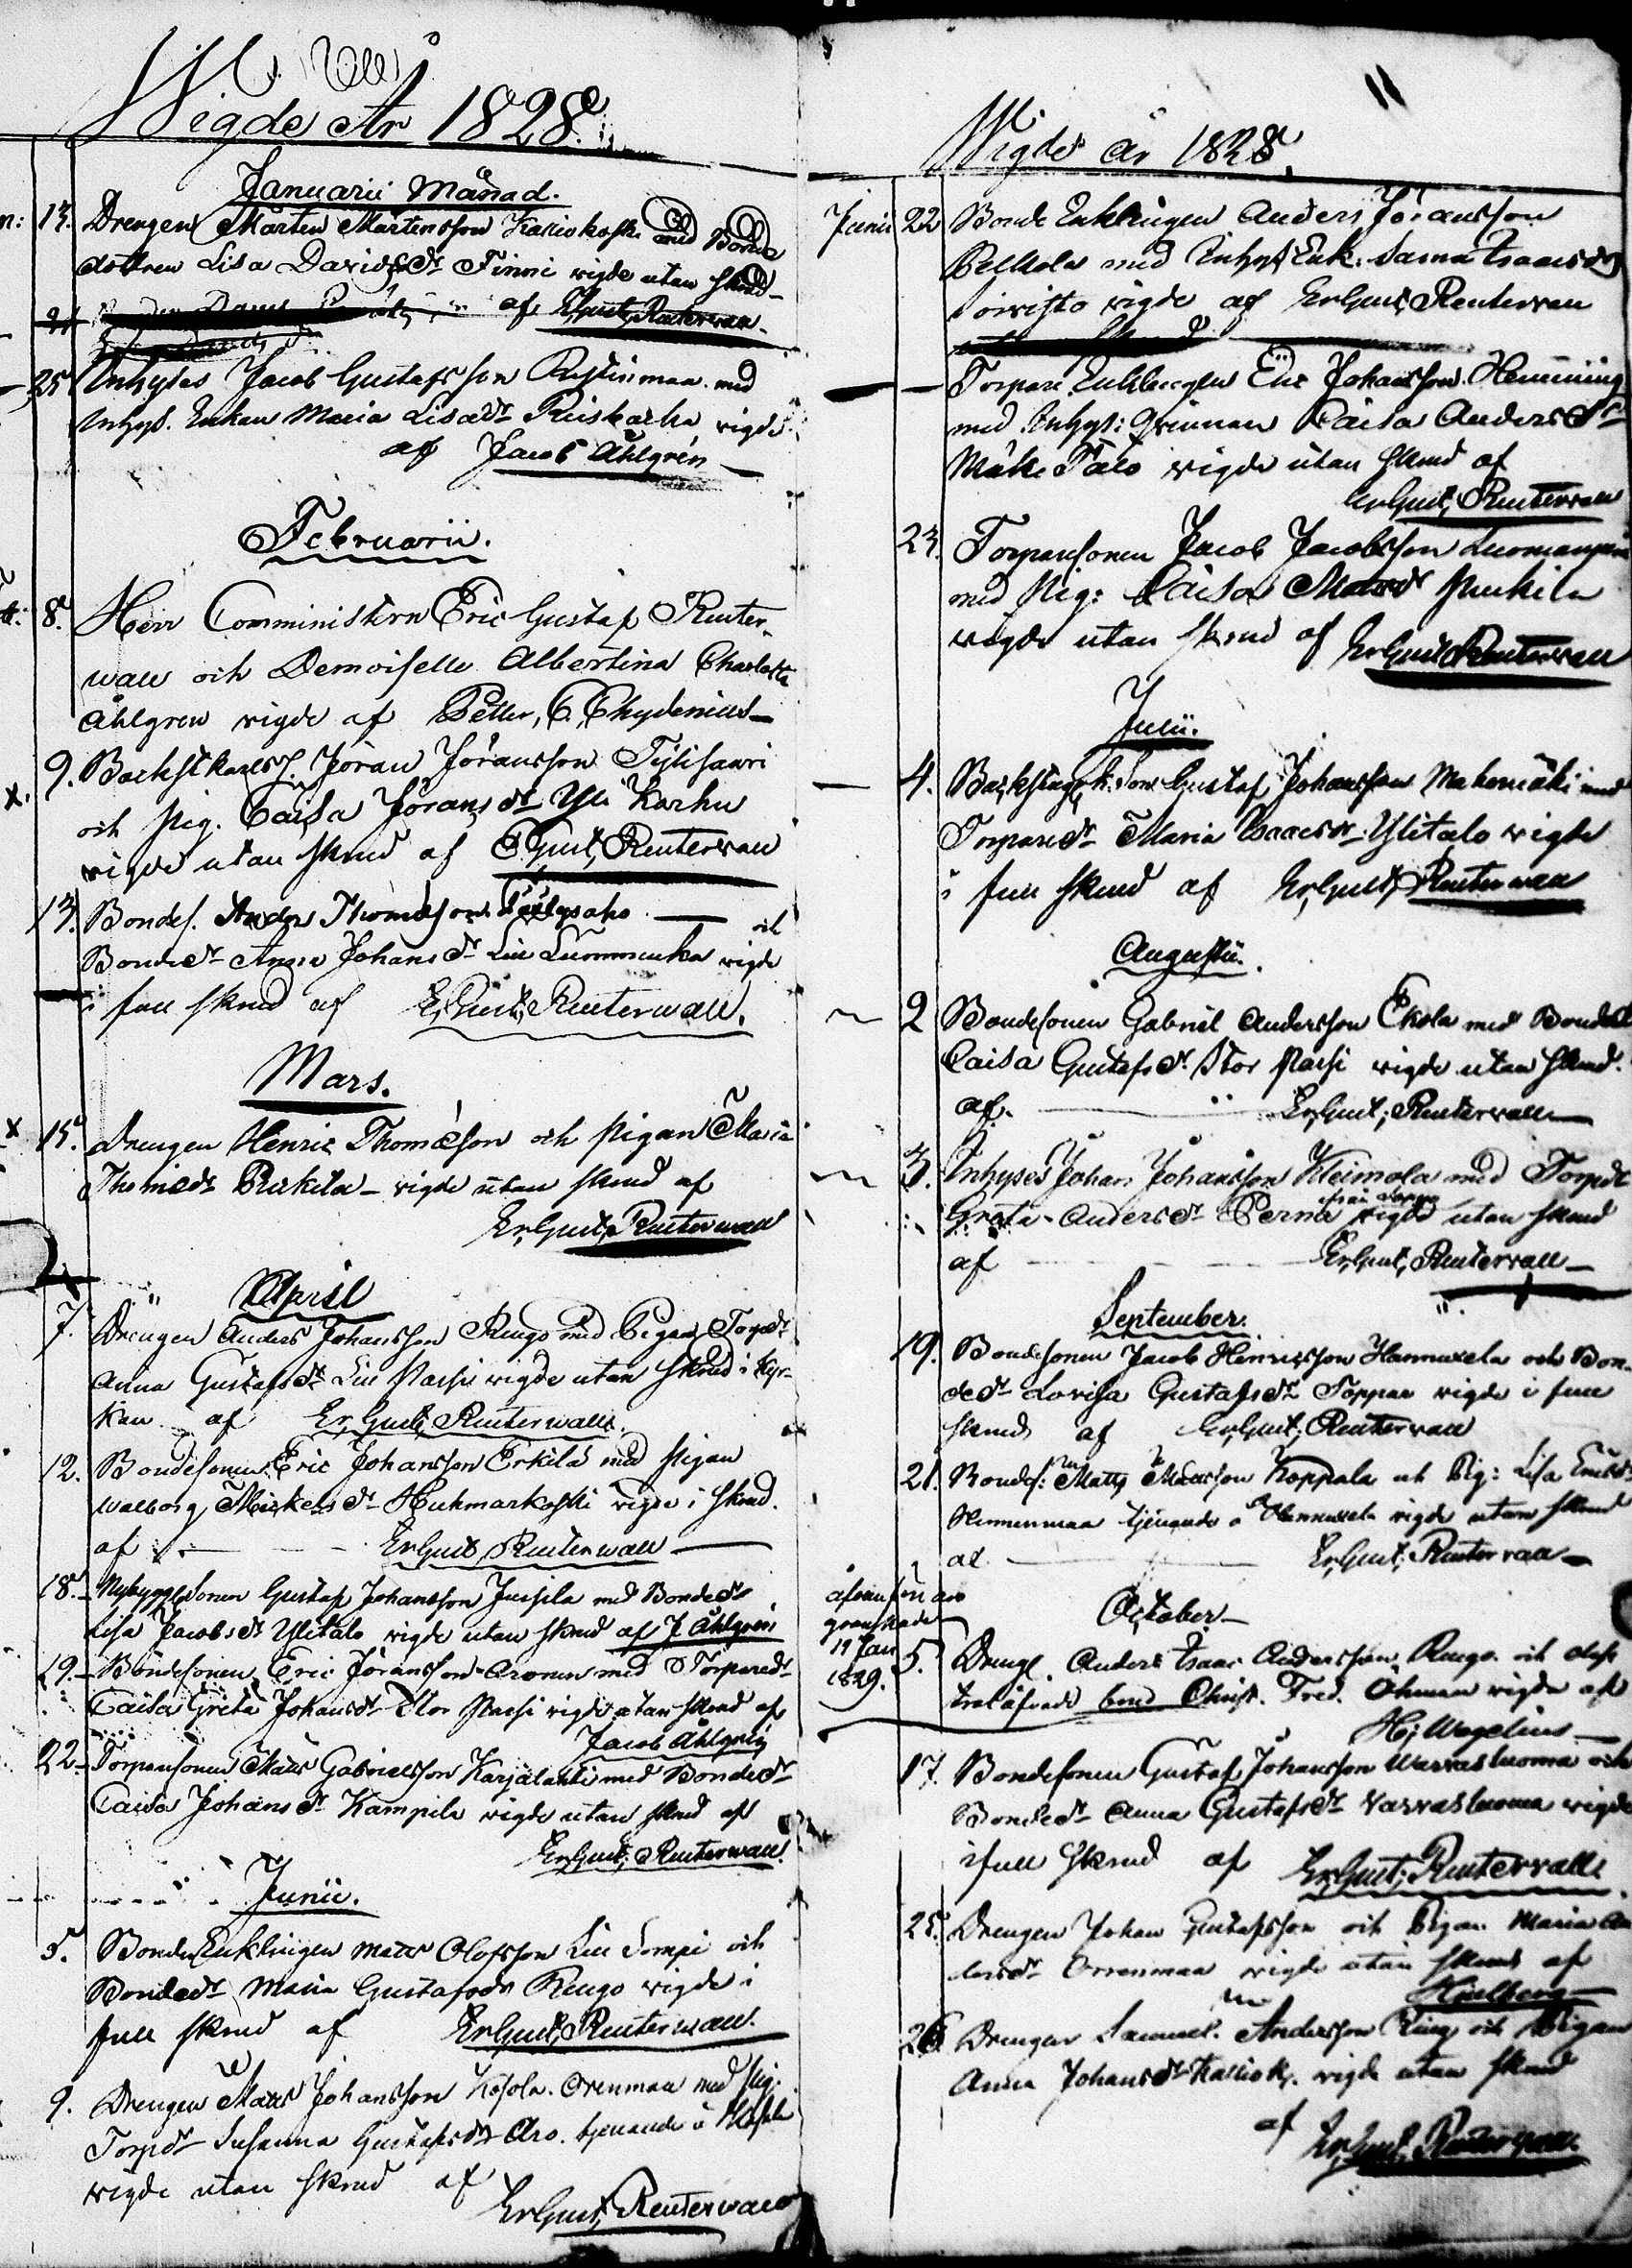 Wigde År 1828.
Januarii Månad.
13. Drengen Mårten Mårtensson Kariokoski med Bonde
dottren Lisa Davidsdr Finni vigde utan skrud
af E. Gust. Reuterwall
25 Inhyses Jacob Gustafsson med
Inhys. Enkan Maria Lisadr Ruiskarha vigde
af Jacob Åhlgrén
Februarii.
8. Herr Comministern Eric Gustaf Reuter-
wall och Demoiselle Albertina Charlotta
Åhlgren vigde af Petter, C. Chydenius
9. Jöran Jöransson
och Pig. Caisa Jöransdr Yli Karhu
vigde utan skrud af E. Gust. Reuterwall
13. Bondes. Anders Thomasson och
Bondedr Anna Johansdr Lill Luommenka vigde
i full skrud af Er. Gust. Reuterwall.
Mars.
15. Drengen Henric Thomæson och pigan Maria
Thomædr vigde utan skrud af
Er. Gust. Reuterwall
April
7. Drengen Anders Johansson Rengo med Pigan Torpdr
Anna Gustafsdr Lill Passi vigde utan skrud i kyr-
kan af Er. Gust. Reuterwall.
12. Bondesonen Eric Johansson Erkilä med pigan
Walborg Mickelsdr Huhmarkoski vigde i skrud.
af Er. Gust. Reuterwall
18. Nybyggesonen Gustaf Johansson Jussila med Bondedr
Lisa Jacobsdr Ylitalo vigde utan skrud af J. Åhlgrén
19. Bondesonen Eric Jöransson Aronen med Torparedr
Caisa Greta Johansdr Stor Passi vigde utan skrud af
Jacob Åhlgrén
22. Torparesonen Matts Gabrielsson Karjalahti med Bondedr
Caisa Johansdr Kampila vigde utan skrud af
Er. Gust. Reuterwall.
Junii.
5. Bonde Enklingen Matts Olofsson Lill Sompi och
Bondedr Maria Gustafsdr Rengo vigde i
full skrud af Er. Gust. Reuterwall.
9. Drengen Matts Johansson Kosola Orrenmaa med Pig.
Torpdr Susanna Gustafsdr Aro. tjenande å
vigde utan skrud af
Er. Gust. Reuterwall
11
Wigde år 1828.
Junii 22 Bonde Enklingen Anders Jöransson
Pelkola med Inhys Enk. Sanna Isaacsdr
Soivisto vigde af Er. Gust. Reuterwall
Torpare Enklingen Eric Johansson Hemming
med Inhys: Qvinnan Caisa Andersdr
Mäki Talo vigde utan skrud af
Er. Gust. Reuterwall
23. Torparesonen Jacob Jacobsson
med Pig: Caisa Mattsdr
vigde utan skrud af Er. Gust. Reuterwall
Julii.
4. Gustaf Johansson Makomäki med
Torparedr Maria Isaacsdr Ylitalo vigde
i full skrud af Er. Gust. Reuterwall
Augusti.
2 Bondesonen Gabriel Andersson Ekola med Bondedr
Caisa Gustafsdr. Stor Passi vigde utan skrud.
af Er. Gust. Reuterwall
3. Inhyses Johan Johansson Kleimola med Torpdr
Greta Andersdr Perna vigde utan skrud
af Er. Gust. Reuterwall
September.
19. Bondesonen Jacob Henricsson Hannuxela och Bon-
dedr Lovisa Gustafsdr Töppar vigde i full
skrud af Er. Gust. Reuterwall
21. Bondes: Matts Mattsson Koppala och Pig: Lisa
tjenande å Hannuxela vigde utan skrud
af Er. Gust. Reuterwall
granskade
19 Jan
1829.
October
5. Dreng. Anders Isaac Andersson Rengo och dess
Christ. Fred. Öhman vigde af
Hj. Wegelius
17. Bondesonen Gustaf Johansson Warrasluoma och
Bondedr Anna Gustafsdr Varrasluoma vigde
i full skrud af Er. Gust. Reuterwall
25. Drengen Johan Gustafsson och Pigan Maria An
dersdr Orrenmaa vigde utan skrud af
26. Drengen Samuel Andersson Ring och Pigan
Anna Johansdr Kariok. vigde utan skrud
af Er. Gust. Reuterwall